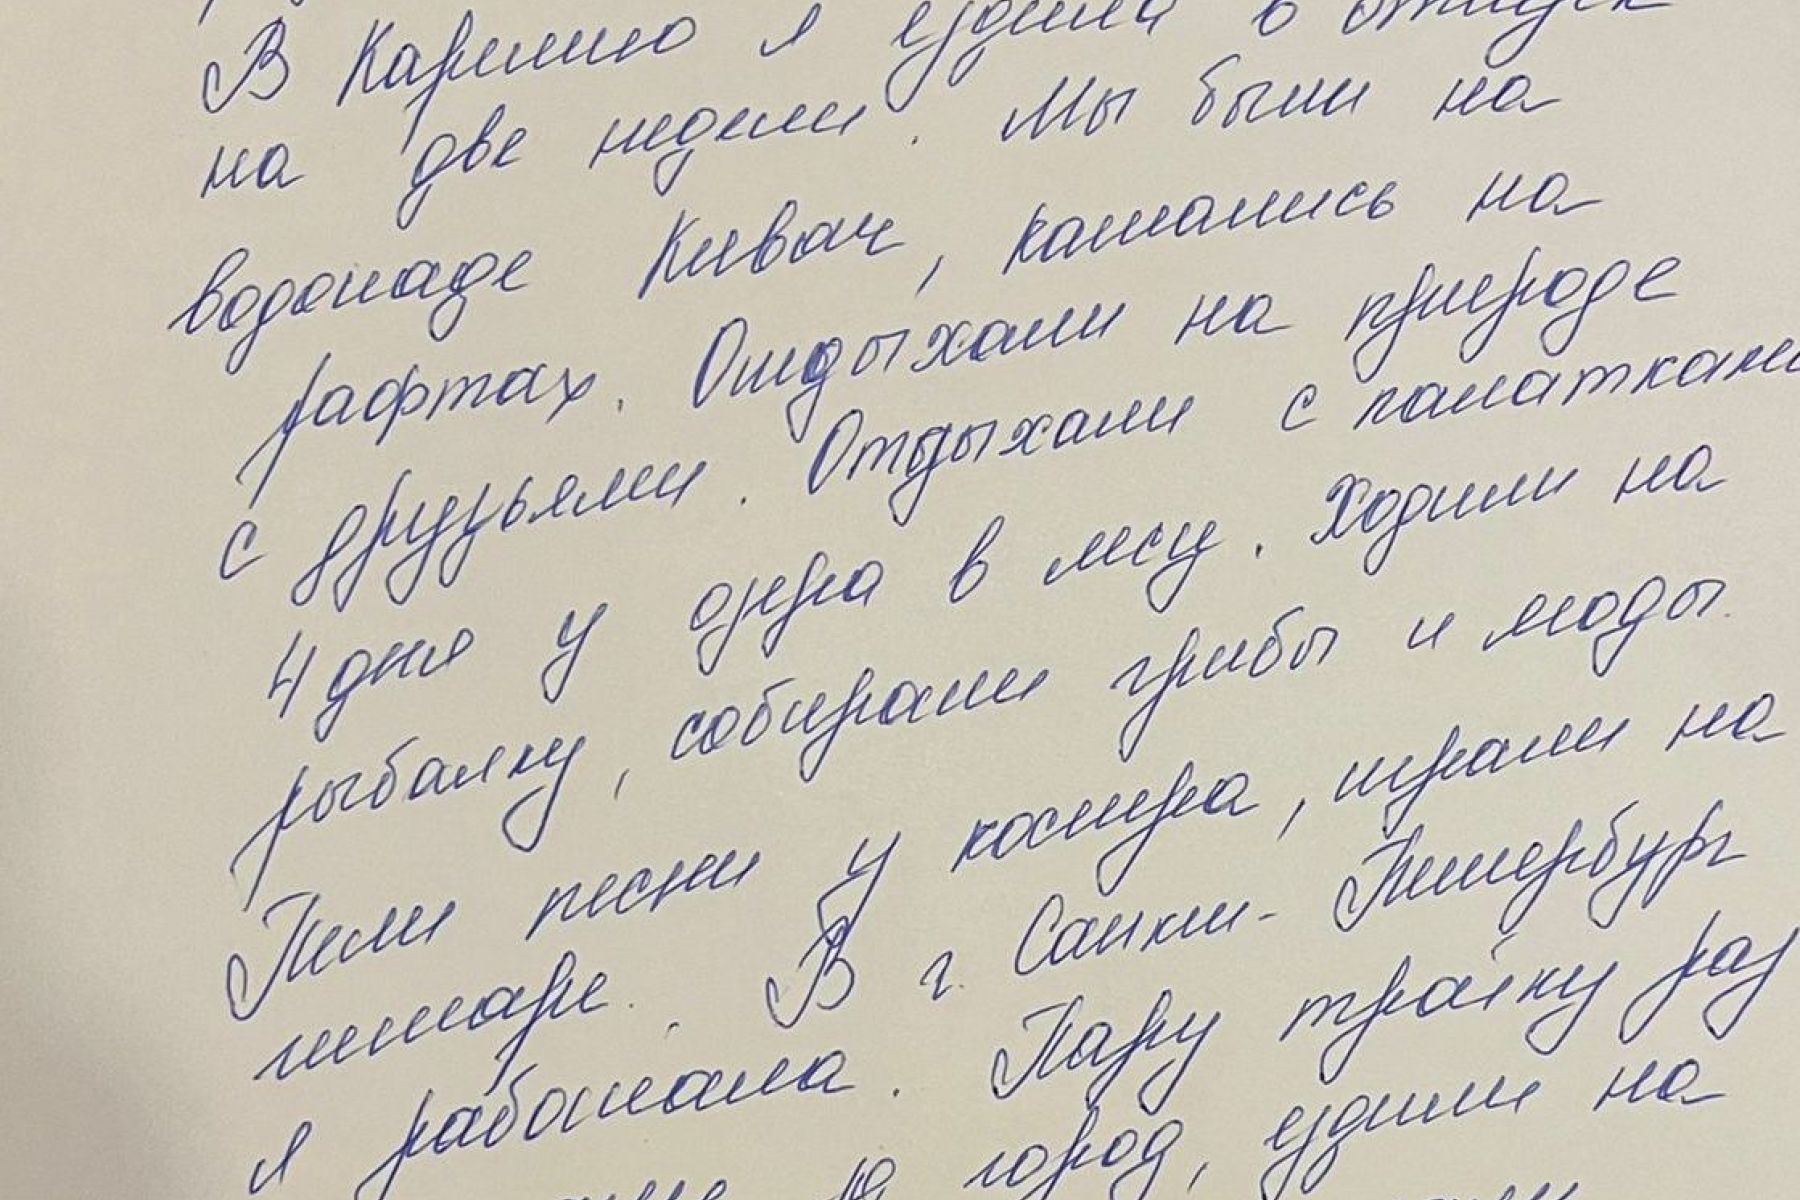 В Карелию я ездила в отпуск
на две недели. Мы были на
водопаде Кивач, катались на
рафтах. Отдыхали на природе
с друзьями. Отдыхали с палатками
4 дня у озера в лесу. Ходили на
рыбалку, собирали грибы и ягоды.
Пели песни у костра, играли на
гитаре. В г. Санкт-Петербург
я работала. Пару тройку раз
город, ездили на